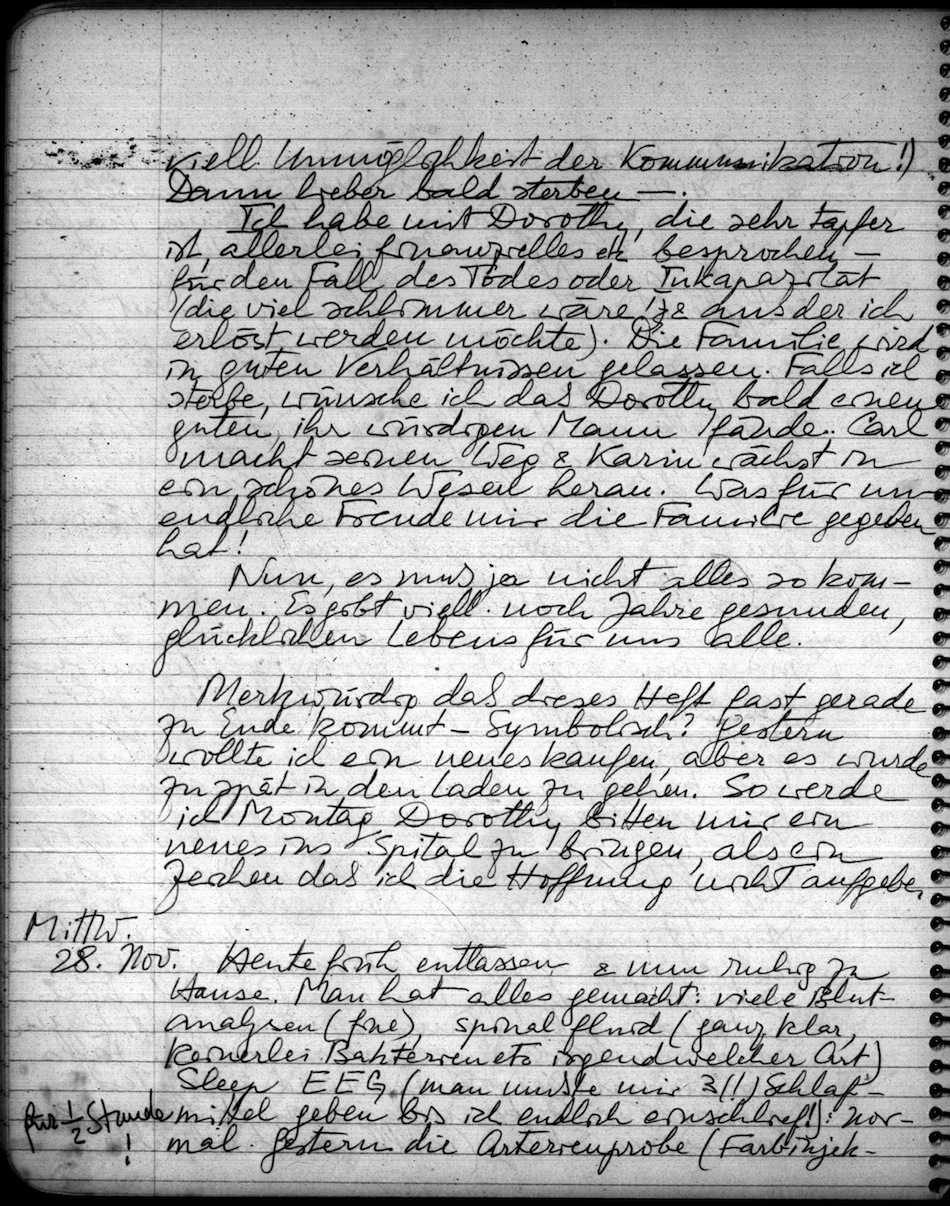 viell. Unmöglichkeit der Kommunikation!)
Dann lieber bald sterben —.
Ich habe mit Dorothy, die sehr tapfer
ist, allerlei finanzielles etc besprochen —
für den Fall des Todes oder Inkapazität
(die viel schlimmer wäre & aus der ich
erlöst werden möchte). Die Familie wird
in guten Verhältnissen gelassen. Falls ich
sterbe, wünsche ich daß Dorothy bald einen
guten, ihr würdigen Mann fände. Carl
macht seinen Weg & Karin wächst in
ein schönes Wesen heran. Was für un
endliche Freude mir die Familie gegeben
hat!
Nun, es muß ja nicht alles so kom-
men. Es gibt viell. noch Jahre gesunden,
glücklichen Lebens für uns alle.
Merkwürdig daß dieses Heft fast gerade
zu Ende kommt — Symbolisch? Gestern
wollte ich ein neues kaufen, aber es wurde
zu spät in den Laden zu gehen. So werde
ich Montag Dorothy bitten mir ein
neues ins Spital zu bringen, als ein
Zeichen daß ich die Hoffnung nicht aufgebe.
Mittw.
28. Nov. Heute früh entlassen & nun ruhig zu
Hause. Man hat alles gemacht: viele Blut-
analysen (fine), spinal fluid (ganz klar,
keinerlei Bakterien etc irgendwelcher Art)
Sleep EEG (man mußte mir 3 (!) Schlaf-
für 1/2 Stunde! mittel geben bis ich endlich einschlief!): nor-
mal. Gestern die Arterienprobe (Farbinjek-